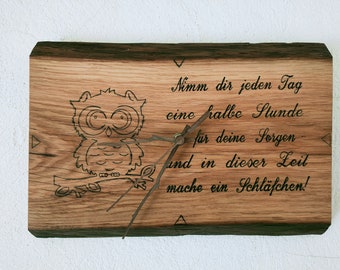 Nimm dir jeden Tag
eine halbe Stunde
für deine Sorgen
und in dieser Zeit
mache ein Schläfchen!